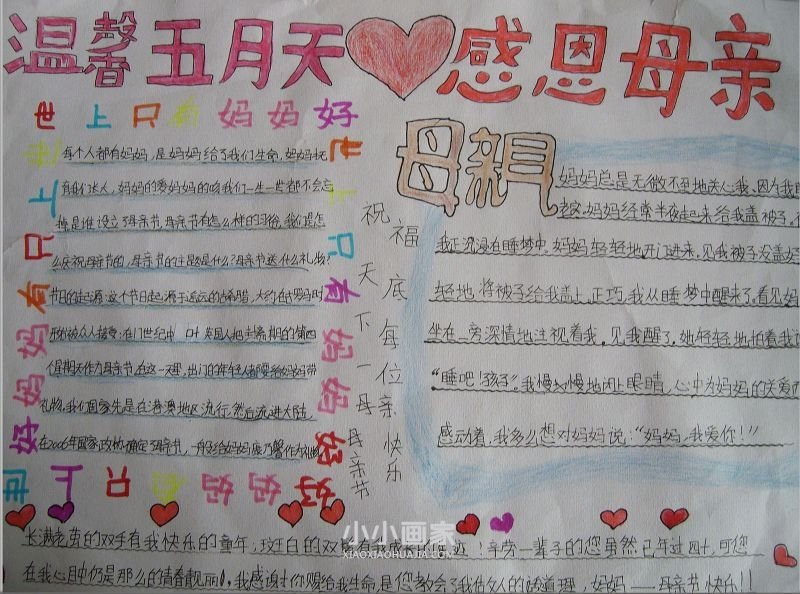 温馨五月天 感恩母亲
世上只有妈妈好
世上只有妈妈好
世上只有妈妈好
世上只有妈妈好
每个人都有妈妈,是妈妈给了我们生命,妈妈抚
育我们长大,妈妈的爱妈妈的咳我们一生一世都不会忘
掉是谁设立了母亲节,母亲节有怎么样的习俗,我们是怎
么庆祝母亲节的,母亲节的主题是什么?母亲节送什么礼物?
节日的起源:这个节日起源于遥远的古希腊,大约在古罗马时
英国人把主斋期的第四
个星期天作为母亲节,在这一天里,出门的年轻人都要给妈妈带
礼物,我们国家先是在港澳地区流行,然后流进大陆,
在2006年国家政协确定
祝福天底下每一位母亲母亲节快乐
母亲月
妈妈总是无微不至地关心我,因为我
妈妈经常半夜起来给我盖被子,
我正沉浸在睡梦中,妈妈轻轻地开门进来,见我被子没盖好
轻地将被子给我盖上,正巧,我从睡梦中醒来了,看见妈
坐在一旁深情地注视着我,见我醒了,她轻轻地拍着我
“睡吧!孩子”。我慢慢地闭上眼睛,心中为妈妈的关爱而
感动着,我多么想对妈妈说:“妈妈,我爱你!”
长满老茧的双手有我快乐的童年;斑白的双鬓有我成长的足迹!辛劳一辈子的您虽然已年过四十,可您
在我心目中仍是那么的青春靓丽,我感谢你赐给我生命,是您教会了我做人的道理,妈妈——母亲节快乐!!
小小画家
XIAOXIAOHUAJIA.COM